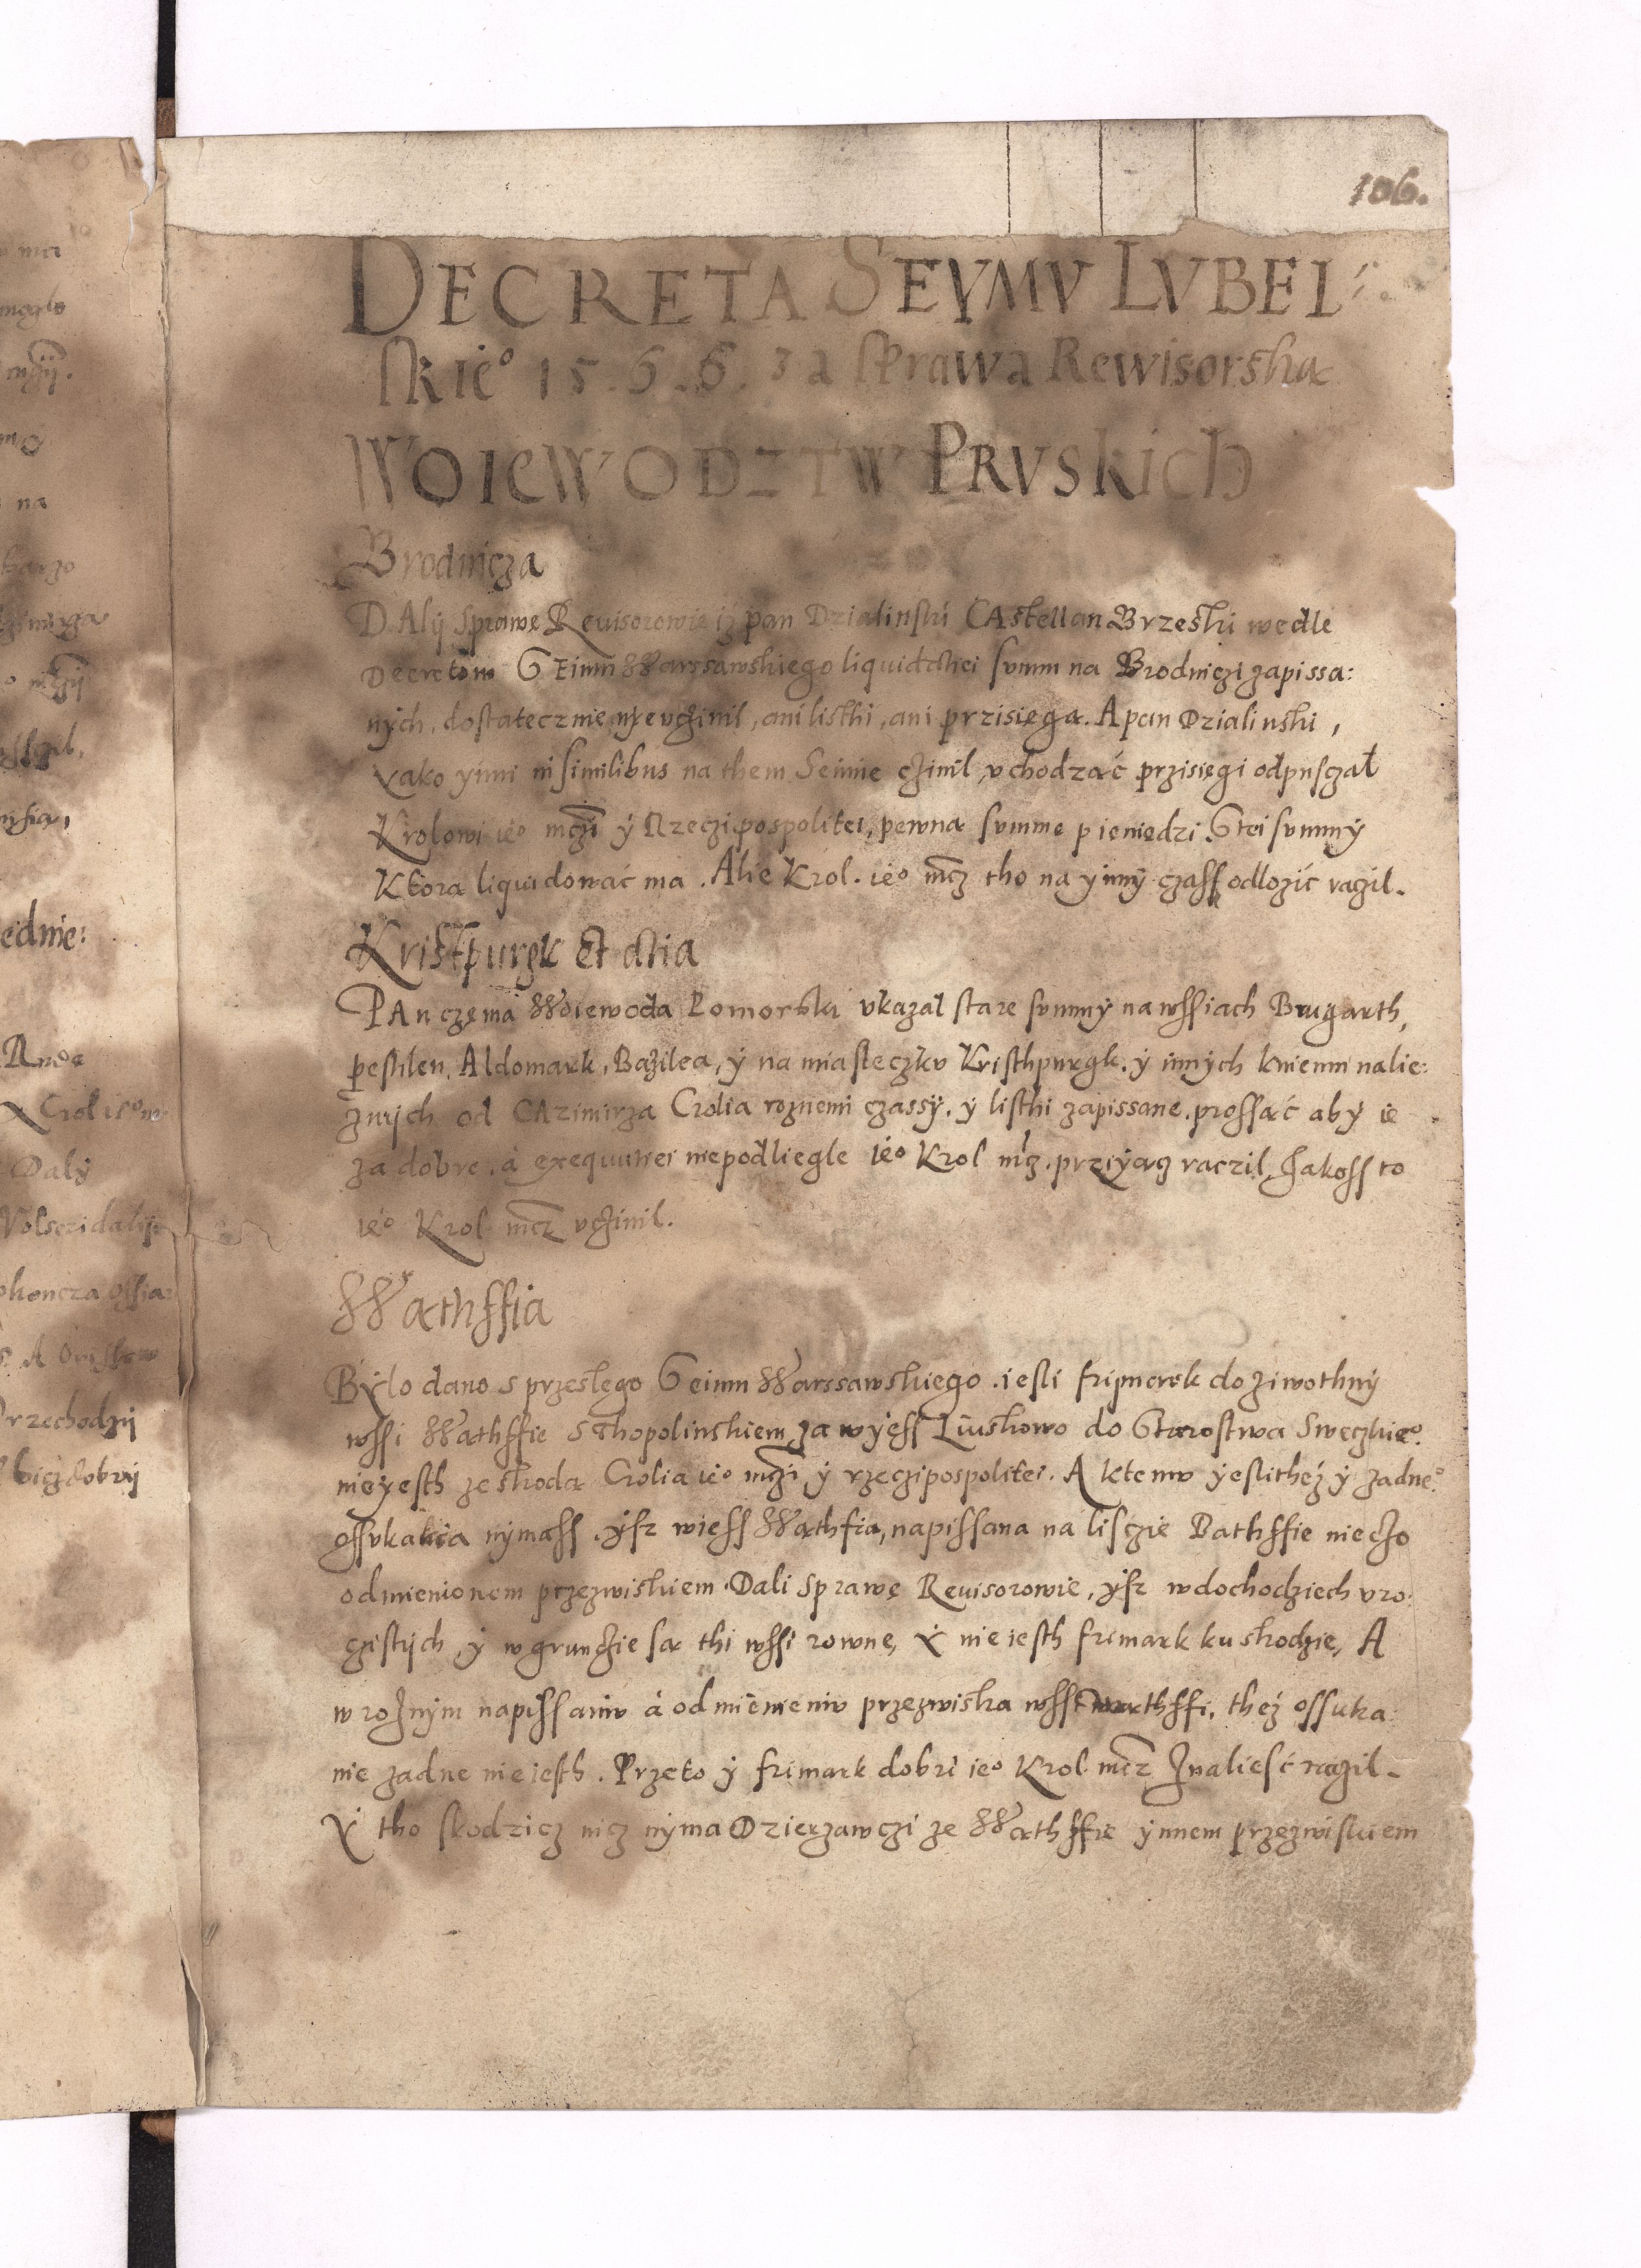 106.
DECRETA SEYMV LVBEL:
skie° 1566. za sprawa Rewisorska
WOIEWODZTW PRVSKICH
Brodnicza
DAlij sprawę Reuisorowie iż pan Dzialinski CAstellan Brzeski wedle
Decretow Seimu Warssawskiego liquidatiei summ na Brodniczi zapissa:
nÿch, dostatecznie nyeuczinil, ani listhi, ani przisięga. A pan Dzialinski,
yako ynni in similibus na them Seimie czinil, vchodząć przisięgi odpusczał
Krolowi ie° mczi ÿ Rzeczipospolitei, pewna summe pieniędzi S tei summÿ
Ktora liquidowáć ma. Alie Krol. ie° mcz tho na ynnÿ czass odlozić raczil.
Kristpurgk et alia
PAn czema Woiewoda Pomorski vkazal stare summÿ na wssiach Brugarth,
pestilen, Aldomark, Bazilea, ÿ na miasteczku Kristhpurgk. ÿ innÿch kniemu nalie:
znÿch od CAzimirza Crolia roznemi czassÿ. ÿ listhi zapissane. prossąć abÿ ie
za dobre. á exequutiei niepodliegle ie° Krol mcz. przÿiącz raczil, Jakoss to
ie° Krol mcz vczinil.
Wathssia
BYlo dano s przeslego Seimu Warssawskiego. iesli frimerek doziwothnÿ
wssi Wathssie S Thopolinskiem za wÿess Liuskowo do Starostwa Sweczkie°.
nieÿesth ze skoda Crolia ie° mczi ÿ rzeczipospolitei. A ktemu ÿeslitheż ÿ zadne°
ossukania nÿmass. ÿsz wiess Wathsia, napissana na liscie Bathssie nieczo
odmienionem przezwiskiem. Dali sprawę Reuisorowie, ÿsz wdochodziech vro:
czistÿch, ÿ w grunczie sa thi wssi rowne, Ÿ nie iesth frimark ku skodzie, A
w roznÿm napissaniu á odmienieniu przezwiska wssi Wathssi, theż ossuka:
nie zadne nie iesth. Przeto ÿ frimark dobri ie° Krol mcz Znalieść raczil.
Ÿ tho skodzicz nicz nÿma Dzierzawczi ze Wathssie ÿnnem przezwiskiem